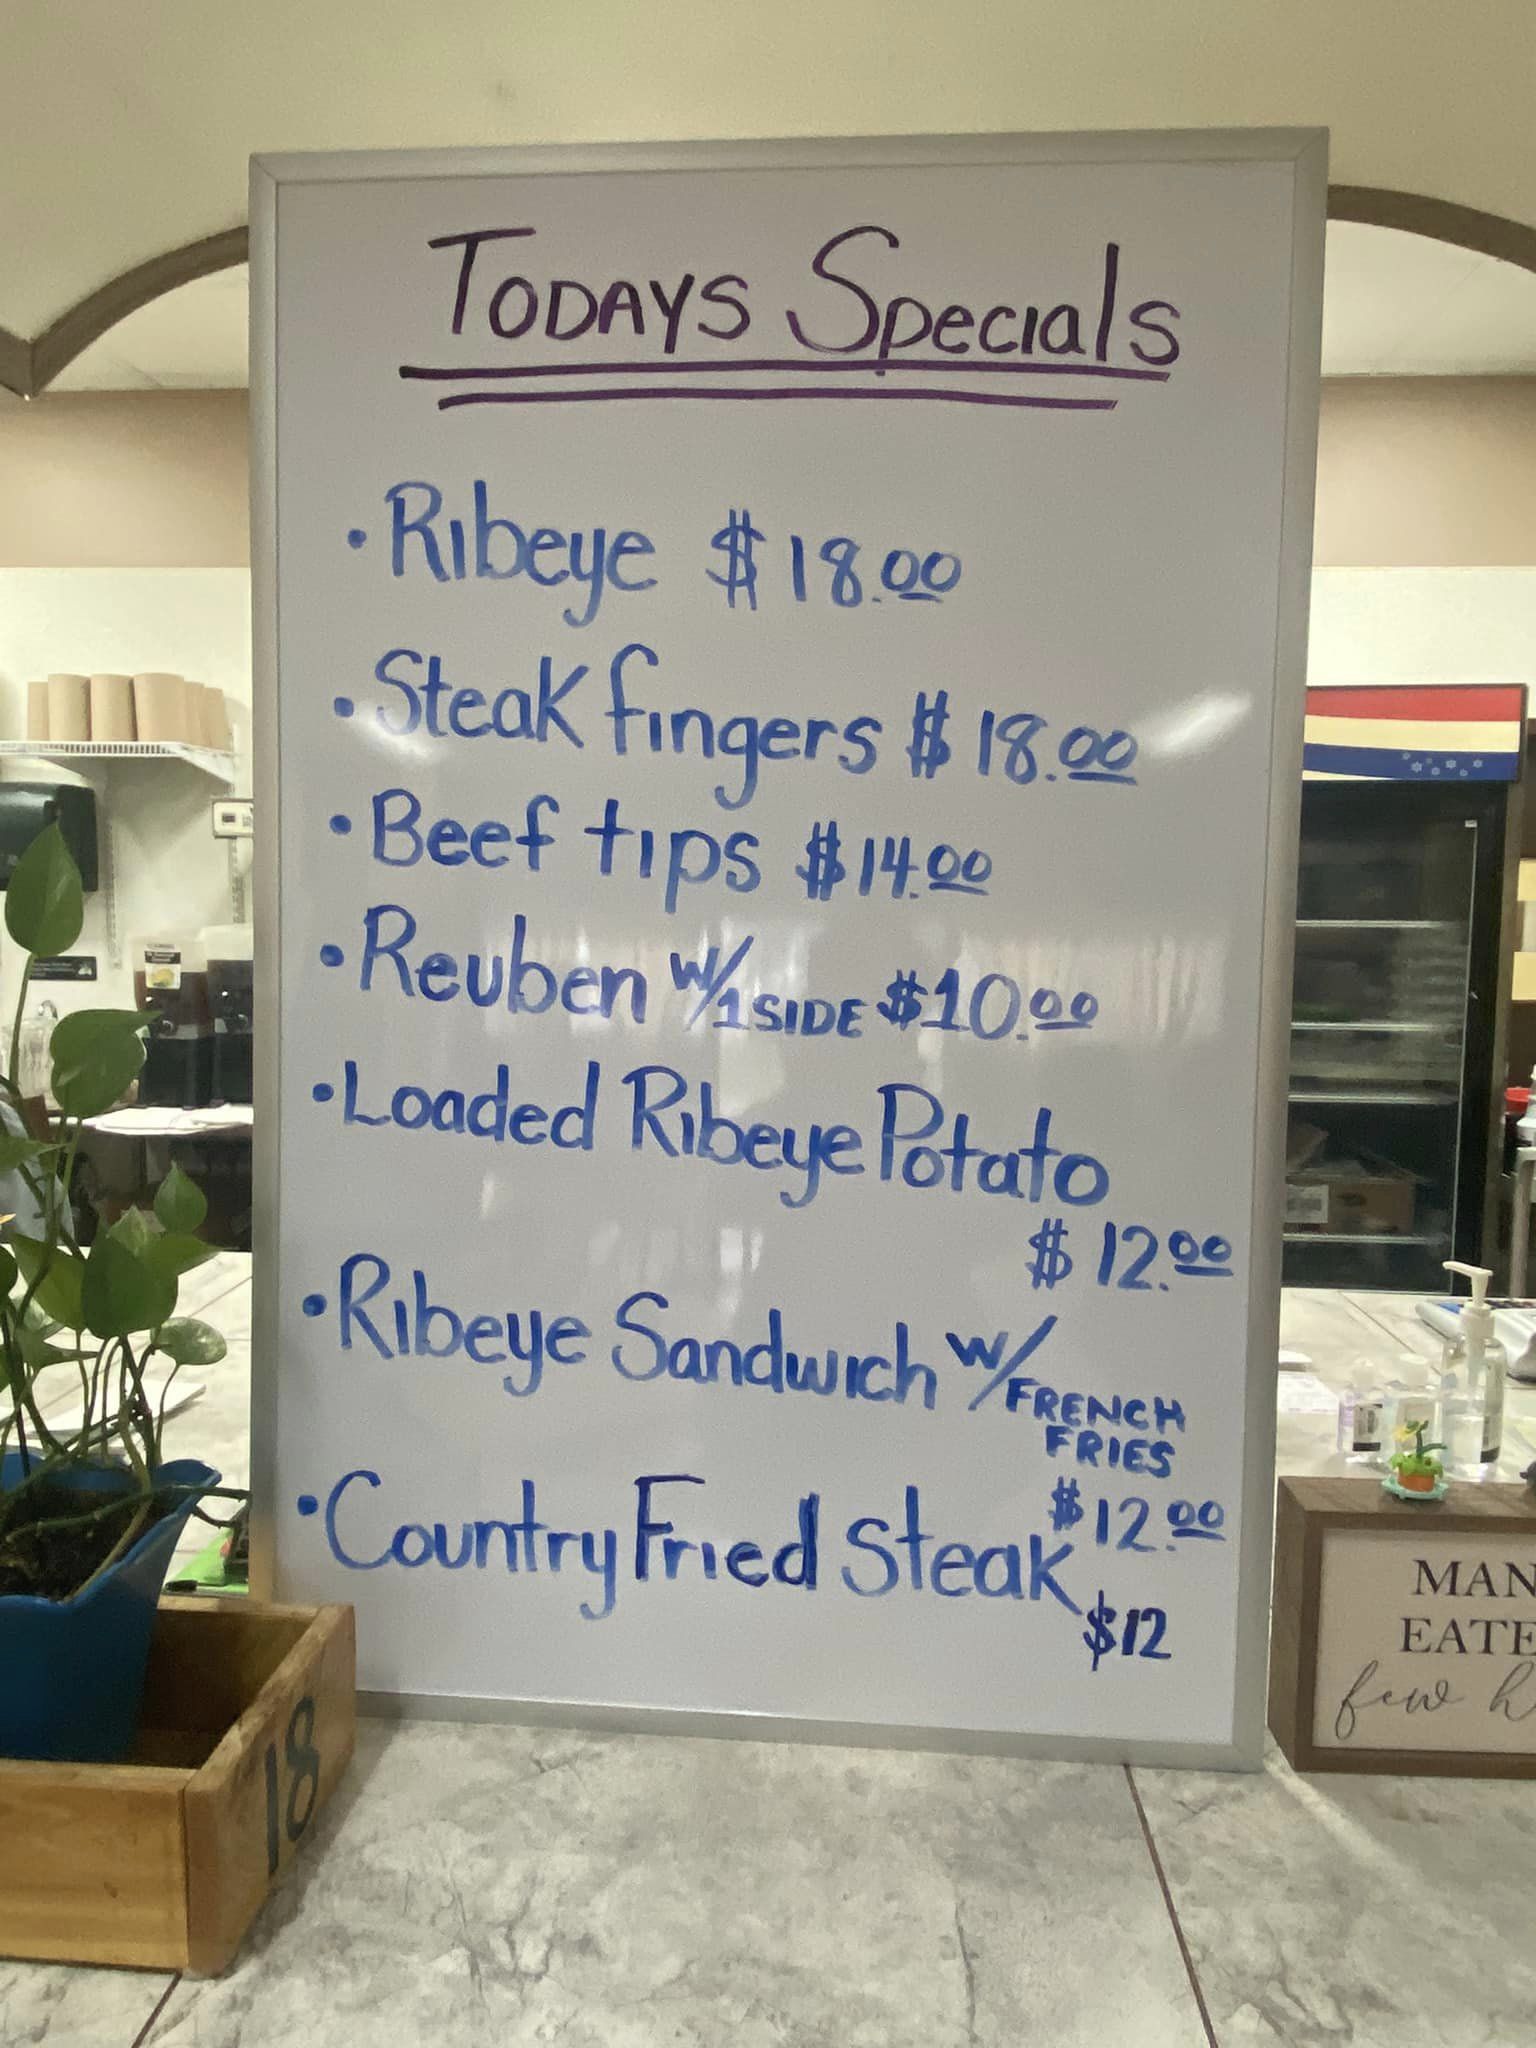 TODAYS Specials
• Ribeye $18.00
• Steak fingers $18.00
• Beef tips $14.00
• Reuben w/1 SIDE $10.00
• Loaded Ribeye Potato
$12.00
• Ribeye Sandwich w/ FRENCH
FRIES
$12.00
• Country Fried Steak
$12
18
MAN
EATE
few h